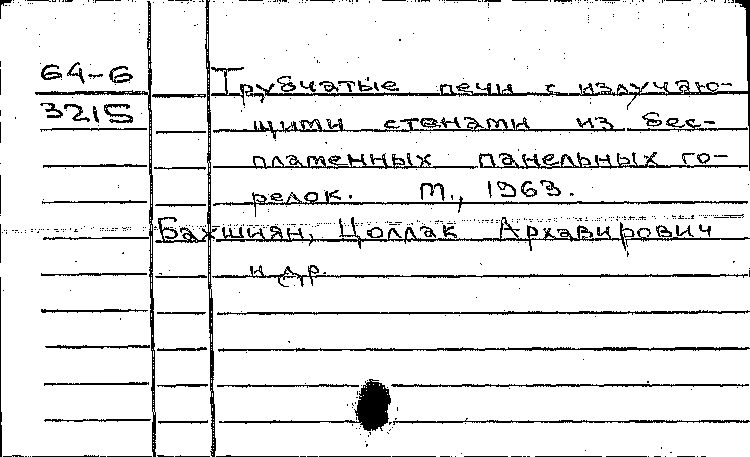 64-6
3215
Трубчатые печи с излучаю-
щими стенами из бес-
пламенных панельных го-
релок. М., 1963.
Бахшиян, Цоллак Архавирович
и др.